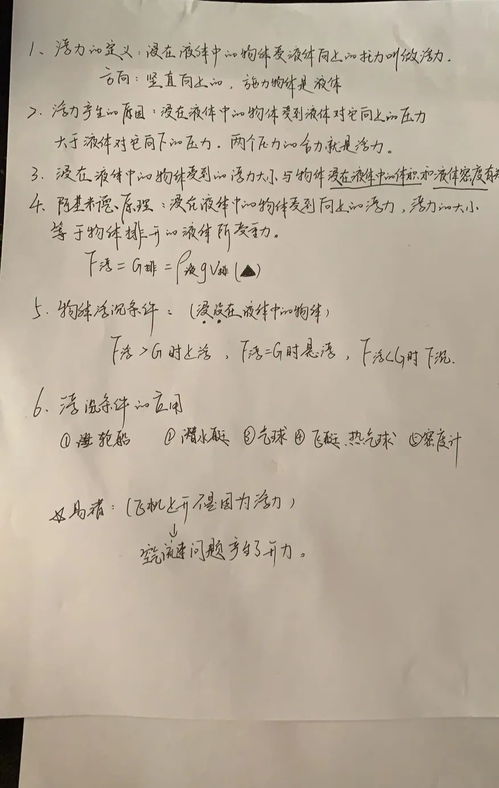 1、浮力的定义：浸在液体中的物体受液体向上的托力叫做浮力.
方向：竖直向上的，施力物体是液体
2、浮力产生的原因：浸在液体中的物体受到液体对它向上的压力
大于液体对它向下的压力，两个压力的合力就是浮力。
3、浸在液体中的物体受到的浮力大小与物体浸在液体中的体积和液体密度有
4、阿基米德原理：浸在液体中的物体受到向上的浮力，浮力的大小
等于物体排开的液体所受重力。
F浮=G排=ρ液gV排(▲)
5、物体浮沉条件：(浸没在液体中的物体)
F浮>G时上浮，F浮=G时悬浮，F浮<G时下沉.
6、浮沉条件的应用
① 轮船 ② 潜水艇 ③ 气球 ④ 飞艇 热气球 ⑤ 密度计
易错：(飞机上升不是因为浮力)
↓
空气流速问题产生了升力。